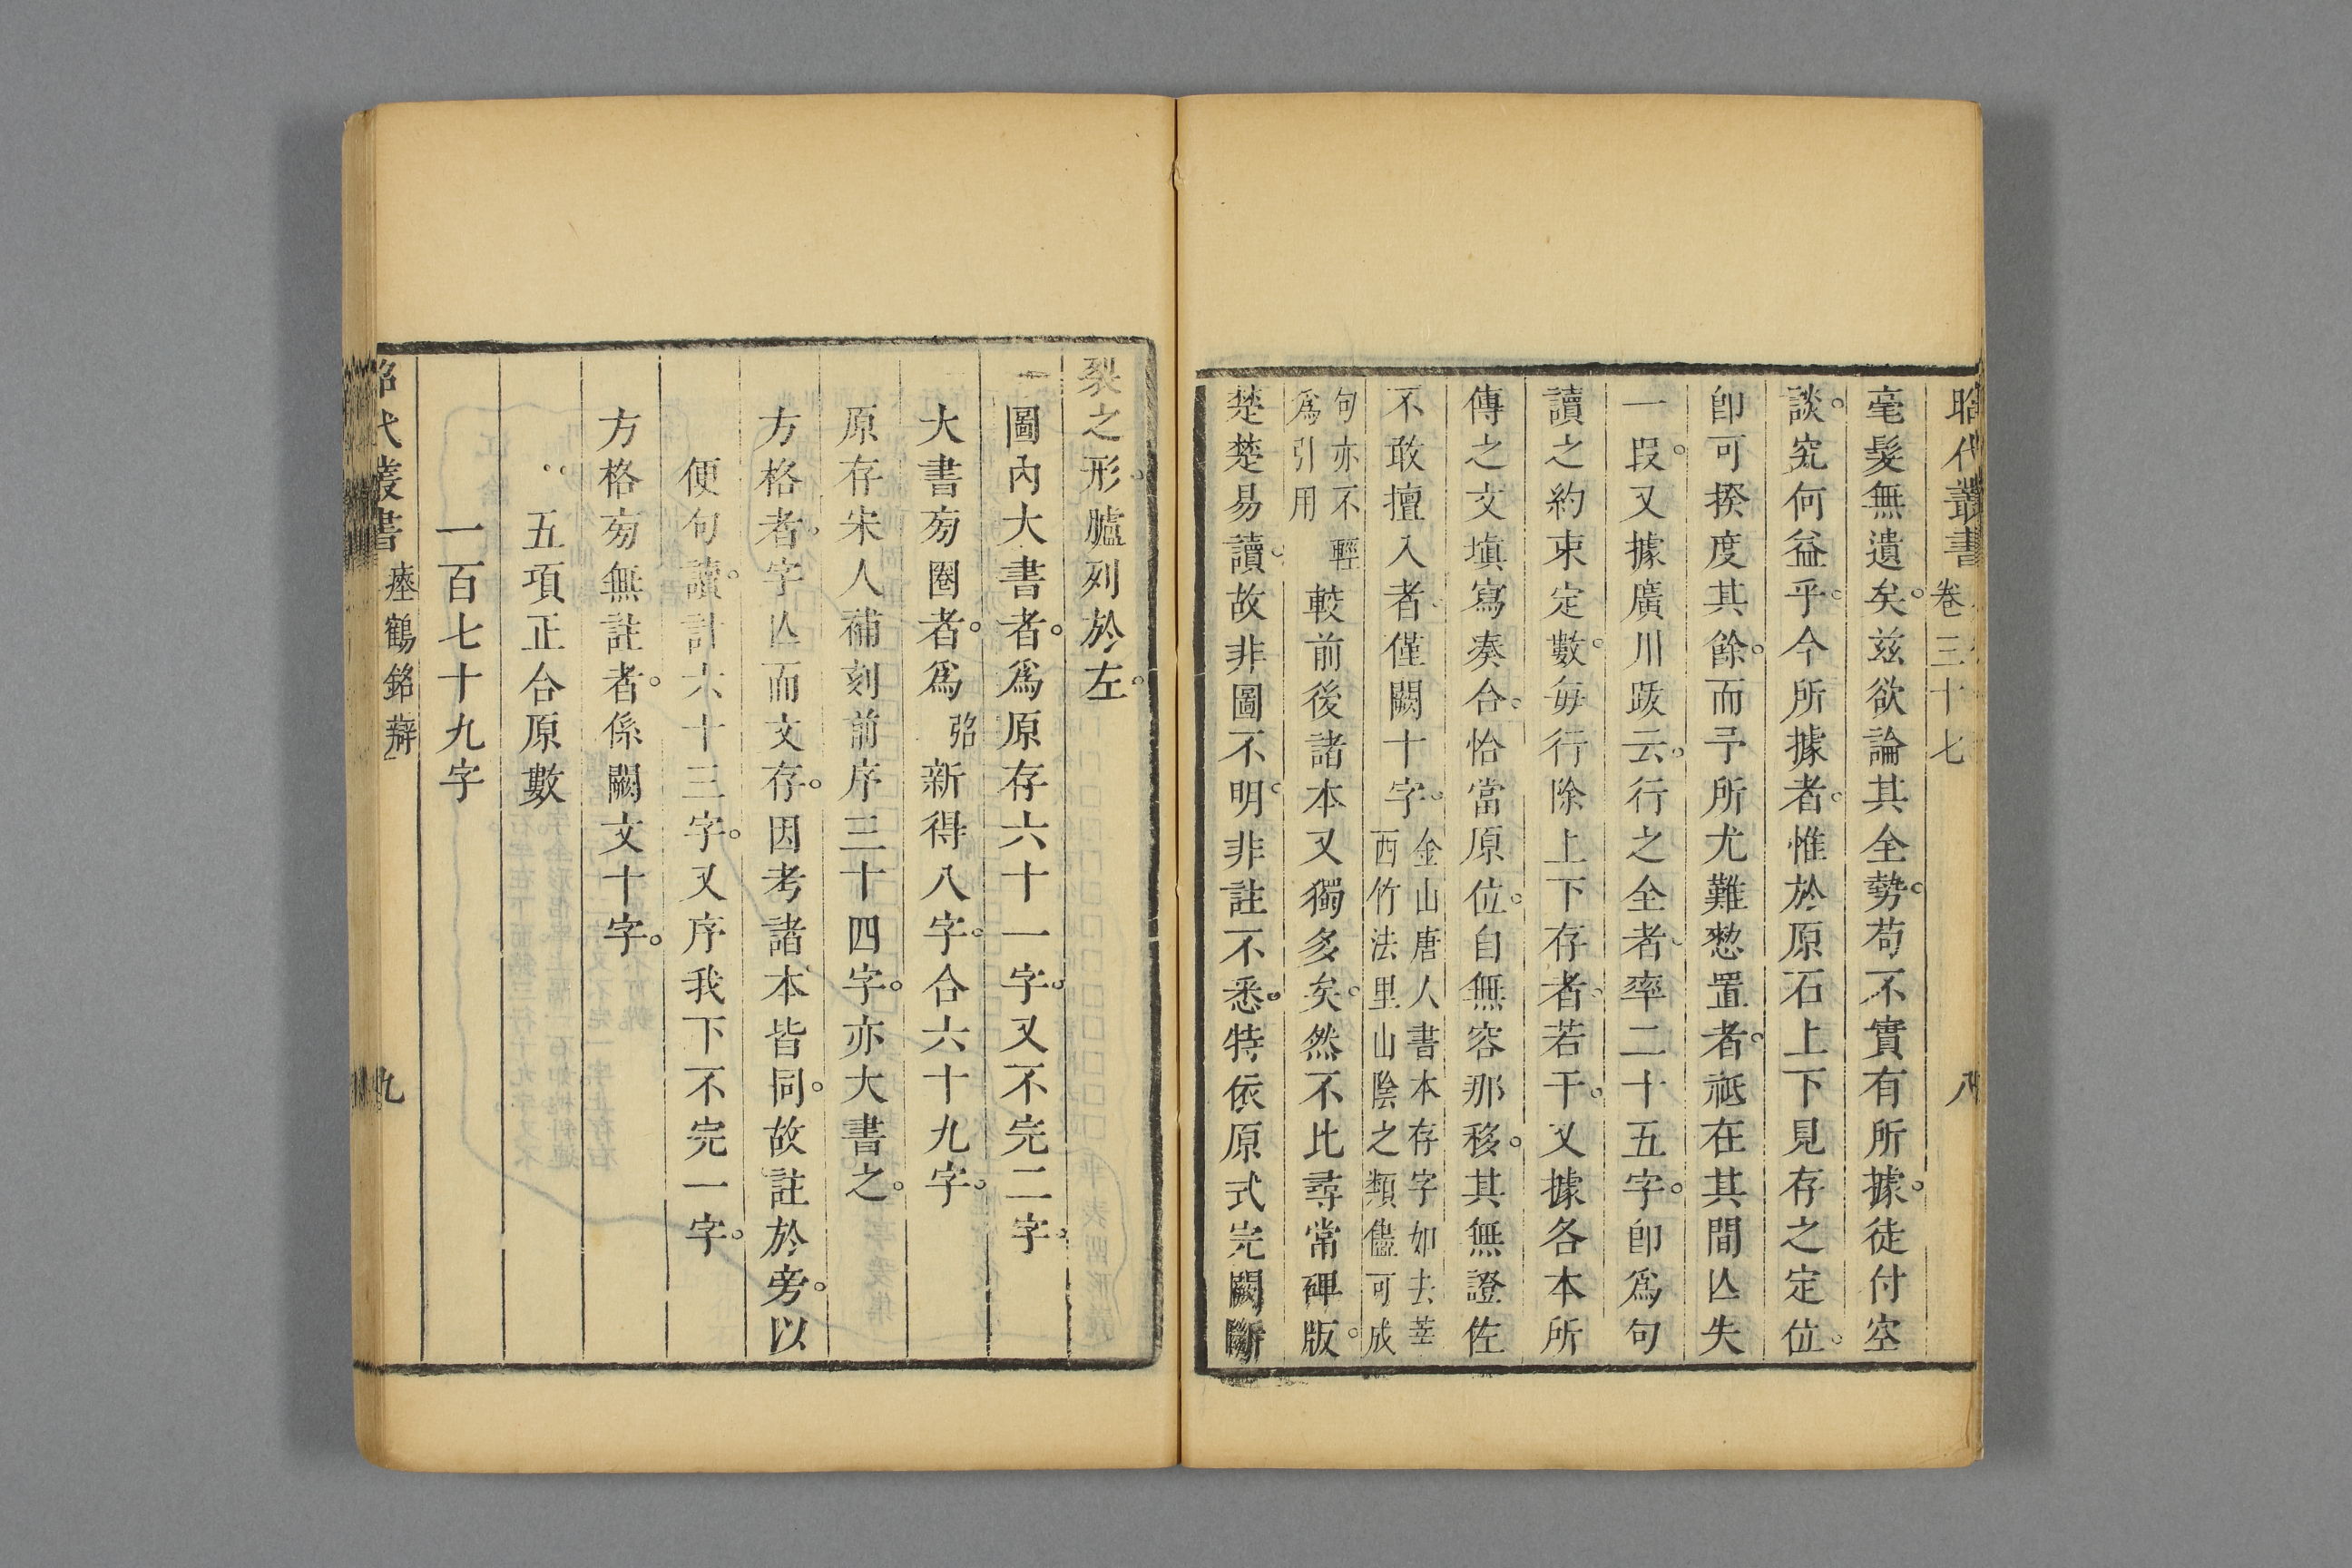 昭代叢書 卷三十七 八
毫髮無遺矣。兹欲論其全勢。苟不實有所據。徒付空
談。究何益乎。今所據者。惟於原石上下見存之定位。
卽可揆度其餘。而予所尤難愸置者。祗在其間亾失
一段。又據廣川跋云。行之全者。率二十五字。卽爲句
讀之約束定數。每行除上下存者。若干。又據各本所
傳之文塡寫奏合。恰當原位。自無容那移。其無證佐
不敢擅入者。僅闕十字。金山唐人書本存字如去莝
西竹法里山陰之類儘可成
句亦不輕
爲引用
較前後諸本又獨多矣。然不比尋常碑版。
楚楚易讀。故非圖不明。非註不悉。特依原式完闕斷
裂之形。臚列於左。
一圖內大書者。爲原存六十一字。又不完二字。
大書㫄圈者。爲弨新得八字。合六十九字。
原存宋人補刻前序三十四字。亦大書之。
方格者。字亾而文存。因考諸本皆同。故註於旁。以
便句讀。計六十三字。又序我下不完一字。
方格㫄無註者。係闕文十字。
五項正合原數
一百七十九字
昭代叢書 瘞鶴銘辯 九